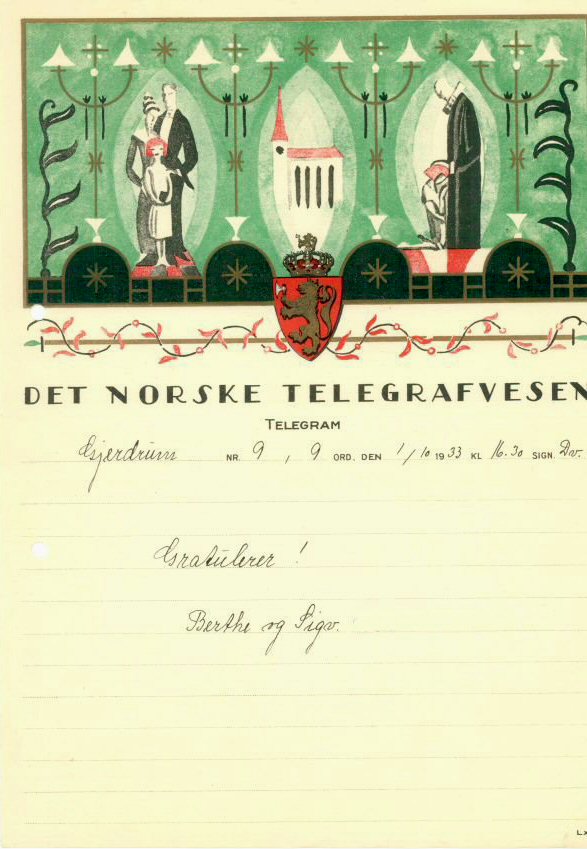 DET NORSKE TELEGRAFVESEN
TELEGRAM
Gjerdrum NR. 9 , 9 ORD. DEN 1/10 1933 KL 16.30 SIGN. Dv.
Gratulerer !
Berthe og Sigv.
L.X